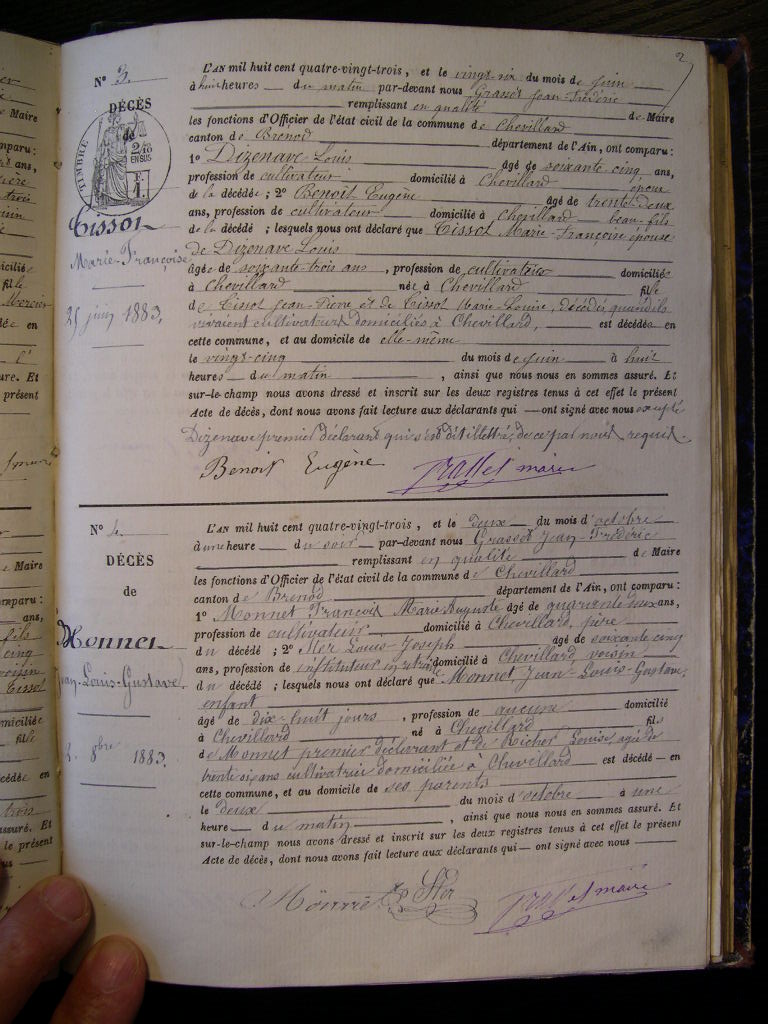 2
N° 3.
DÉCÈS
de
TIMBRE
2/10 EN SUS
F. 1.
Tissot
Marie-Françoise
25 juin 1883.
L'AN mil huit cent quatre-vingt-trois, et le vingt-six du mois de juin
à huit heures du matin par-devant nous Grasset Jean-Frédéric
remplissant en qualité de Maire
les fonctions d'Officier de l'état civil de la commune de Chevillard
canton de Brenod département de l'Ain, ont comparu :
1° Dizenave Louis âgé de soixante-cinq ans,
profession de cultivateur domicilié à Chevillard époux
de la décédée ; 2° Benoit Eugène âgé de trente-deux
ans, profession de cultivateur domicilié à Chevillard beau-fils
de la décédée ; lesquels nous ont déclaré que Tissot Marie-Françoise épouse
de Dizenave Louis
âgée de soixante-trois ans, profession de cultivatrice domiciliée
à Chevillard née à Chevillard fille
de Tissot Jean-Pierre et de Tissot Marie-Louise, décédés, quand ils
vivaient cultivateurs domiciliés à Chevillard, est décédée en
cette commune, et au domicile de elle-même
le vingt-cinq du mois de juin à huit
heures du matin, ainsi que nous nous en sommes assuré. Et
sur-le-champ nous avons dressé et inscrit sur les deux registres tenus à cet effet le présent
Acte de décès, dont nous avons fait lecture aux déclarants qui ont signé avec nous excepté
Dizenave premier déclarant qui s'est dit illettré, de ce par nous requis.
Benoit Eugène Grasset maire
N° 4.
DÉCÈS
de
Monnet
Jean-Louis-Gustave
2 8bre 1883.
L'AN mil huit cent quatre-vingt-trois, et le deux du mois d'octobre
à une heure du soir par-devant nous Grasset Jean-Frédéric
remplissant en qualité de Maire
les fonctions d'Officier de l'état civil de la commune de Chevillard
canton de Brenod département de l'Ain, ont comparu :
1° Monnet François Marie-Auguste âgé de quarante deux ans,
profession de cultivateur domicilié à Chevillard, père
du décédé ; 2° Ster Louis-Joseph âgé de soixante cinq
ans, profession de instituteur en retraite domicilié à Chevillard voisin
du décédé ; lesquels nous ont déclaré que Monnet Jean-Louis-Gustave
enfant
âgé de dix-huit jours, profession de aucune domicilié
à Chevillard né à Chevillard fils
de Monnet premier déclarant et de Richer Louise, agée de
trente six ans cultivatrice domiciliée à Chevillard est décédé en
cette commune, et au domicile de ses parents
le deux du mois d'octobre à une
heure du matin, ainsi que nous nous en sommes assuré. Et
sur-le-champ nous avons dressé et inscrit sur les deux registres tenus à cet effet le présent
Acte de décès, dont nous avons fait lecture aux déclarants qui ont signé avec nous
Monnet Ster Grasset maire